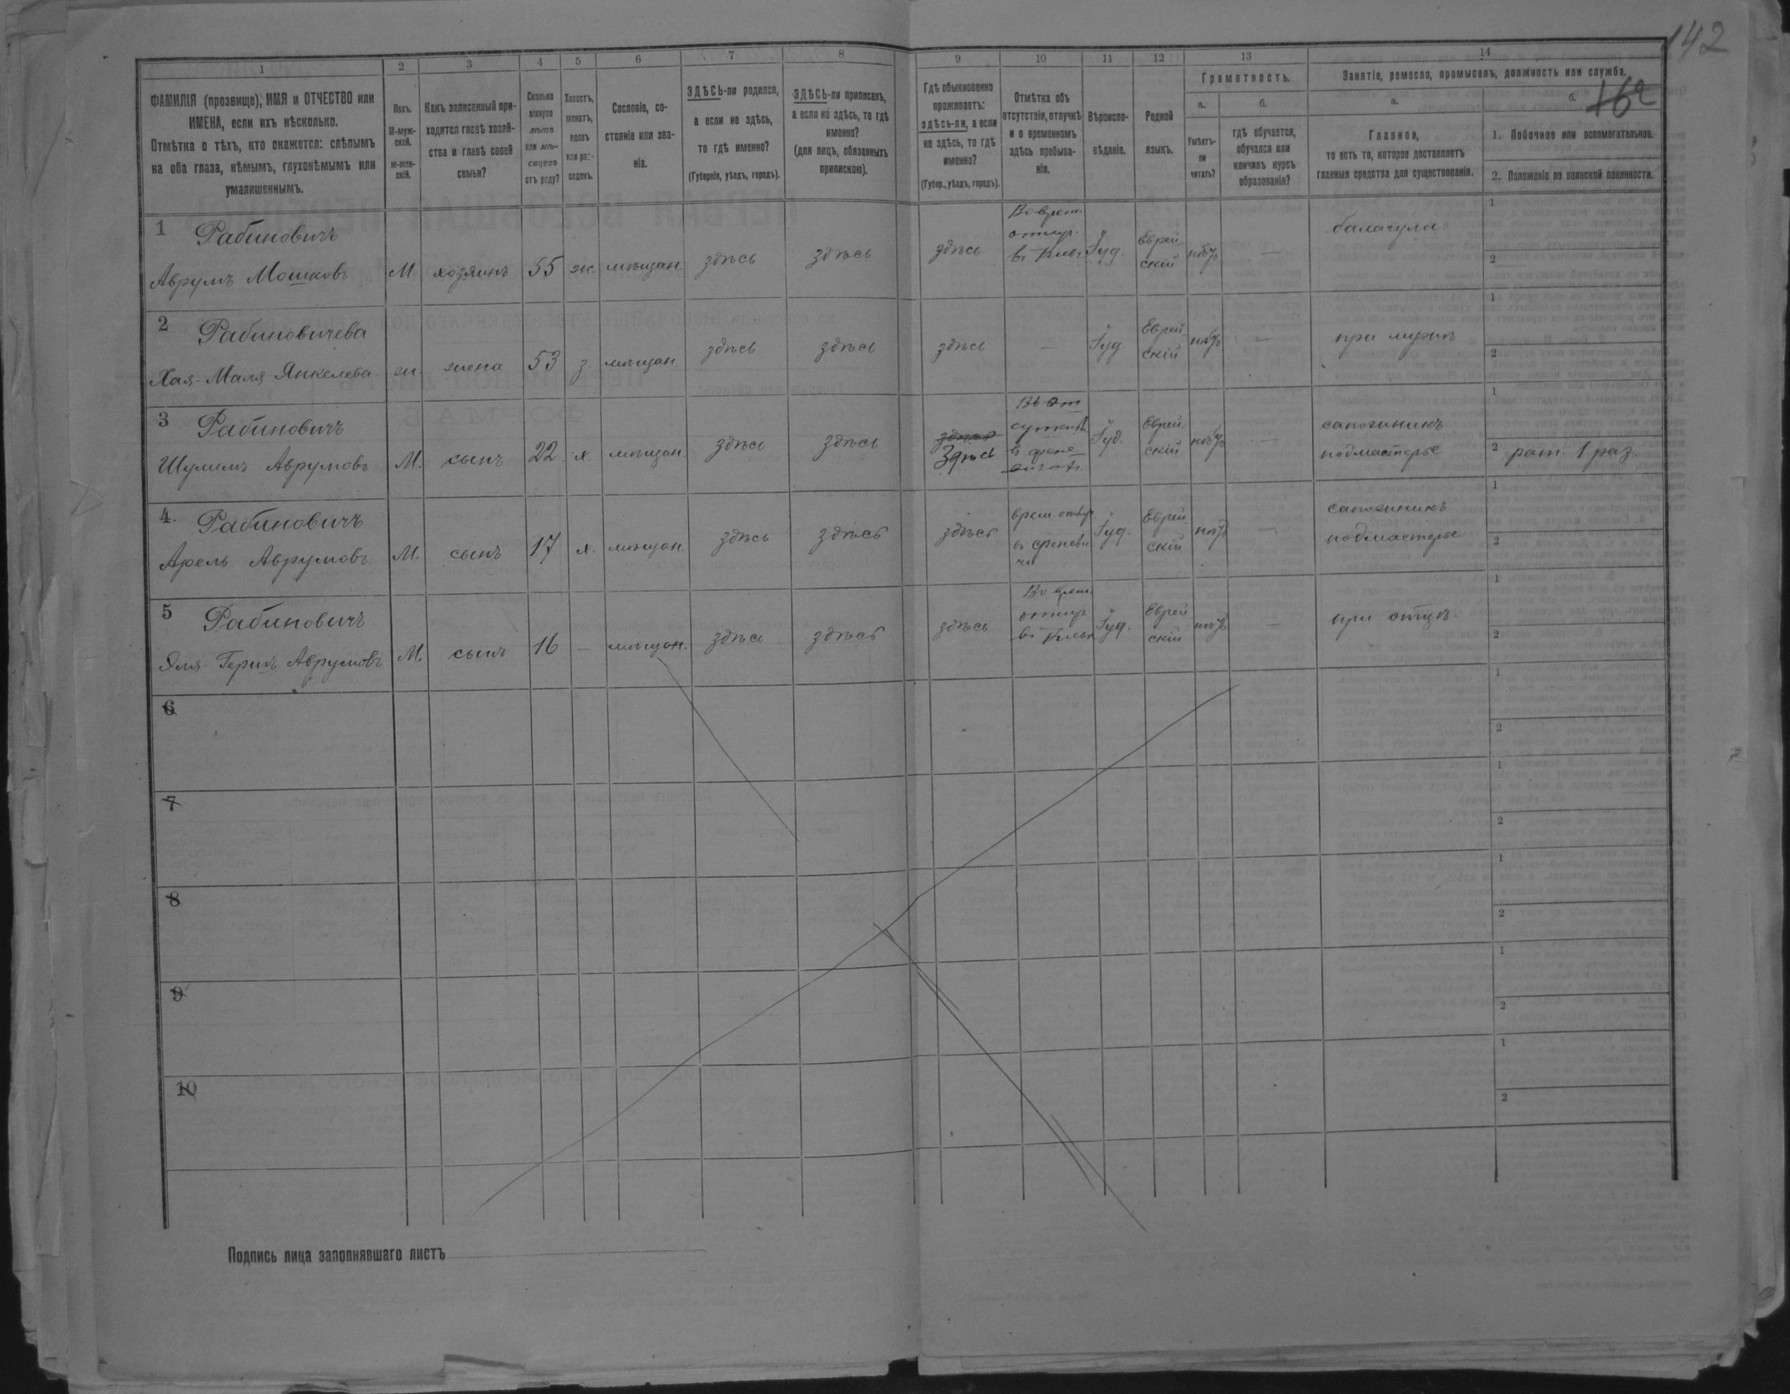 142
162
1 2 3 4 5 6 7 8 9 10 11 12 13 14
ФАМИЛІЯ (прозвище), ИМЯ и ОТЧЕСТВО или
ИМЕНА, если ихъ нѣсколько.
Отмѣтка о тѣхъ, кто окажется: слѣпымъ
на оба глаза, нѣмымъ, глухонѣмымъ или
умалишеннымъ.
Полъ.
М-муж-
ской.
ж-жен-
скій.
Какъ записанный при-
ходится главѣ хозяй-
ства и главѣ своей
семьи?
Сколько
минуло
лѣтъ
или мѣ-
сяцевъ
отъ роду?
Холостъ,
женатъ,
вдовъ
или раз-
веденъ.
Сословіе, со-
стояніе или зва-
ніе.
ЗДѢСЬ-ли родился,
а если не здѣсь,
то гдѣ именно?
(Губернія, уѣздъ, городъ).
ЗДѢСЬ-ли приписанъ,
а если не здѣсь, то гдѣ
именно?
(для лицъ, обязанныхъ
припискою).
Гдѣ обыкновенно
проживаетъ:
здѣсь-ли, а если
не здѣсь, то гдѣ
именно?
(Губер., уѣздъ, городъ).
Отмѣтка объ
отсутствіи, отлучкѣ
и о временномъ
здѣсь пребыва-
ніи.
Вѣроиспо-
вѣданіе.
Родной
языкъ.
Грамотность.
а.
Умѣетъ-
ли
читать?
б.
гдѣ обучается,
обучался или
кончилъ курсъ
образованія?
Занятіе, ремесло, промыселъ, должность или служба.
а.
Главное,
то есть то, которое доставляетъ
главныя средства для существованія.
б.
1. Побочное или вспомогательное.
2. Положеніе по воинской повинности.
1 Рабиновичъ
Аврумъ Мошковъ М. хозяинъ 55 ж. мѣщан. здѣсь здѣсь здѣсь Іуд. Еврей
скій балагула
1
2
2 Рабиновичева
Хая-Маля Янкелева ж. жена 53 з. мѣщан. здѣсь здѣсь здѣсь — Іуд Еврей
скій — при мужѣ
1
2
3 Рабиновичъ
Шулимъ Аврумовъ М. сынъ 22 х. мѣщан. здѣсь здѣсь здѣсь
Здѣсь Іуд. Еврей
скій — сапожникъ
подмастерье
1
2 рат. 1 раз.
4. Рабиновичъ
Арель Аврумовъ М. сынъ 17 х. мѣщан. здѣсь здѣсь здѣсь Іуд. Еврей
скій — сапожникъ
подмастерье
1
2
5 Рабиновичъ
Герш. Аврумовъ М. сынъ 16 — мѣщан. здѣсь здѣсь здѣсь Іуд. Еврей
скій — при отцѣ.
1
2
6
1
2
7
1
2
8
1
2
9
1
2
10
1
2
Подпись лица заполнявшаго листъ